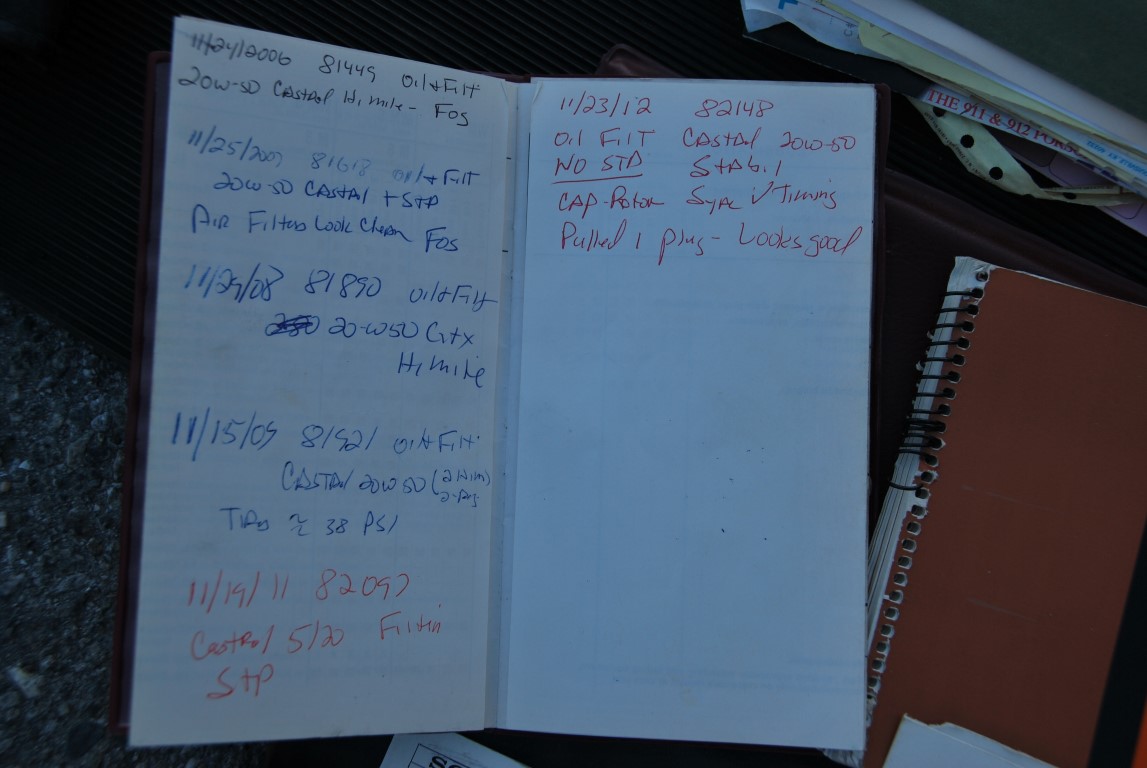 11/24/2006 81449 Oil & Filt
20W-50 Castrol Hi mile - Fos
11/25/2007 81618 oil & Filt
20W-50 Castrol + STP
Air Filters Look Clean Fos
11/29/08 81890 oil & Filt
20-W50 GTX
Hi mile
11/15/09 81921 oil & Filt
Castrol 20W50 (2 Him)
2-Reg
Tires ≈ 38 PSI
11/19/11 82097
Castrol 5/20 Filt
STP
11/23/12 82148
Oil Filt Castrol 20W-50
NO STP Stabil
Cap-Rotor Timing
Pulled 1 plug - Looks good
THE 911 & 912 PORS